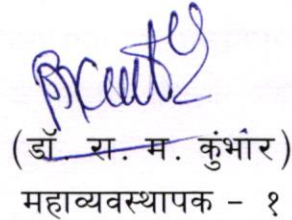 (डॉ. रा. म. कुंभार)
महाव्यवस्थापक - १